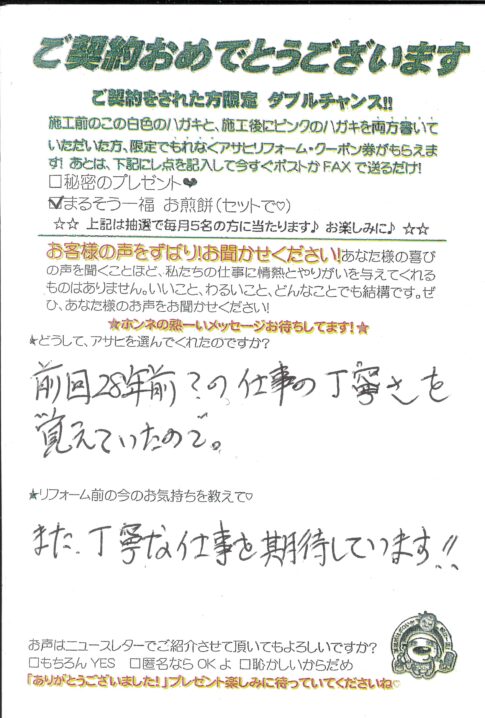 ご契約おめでとうございます
ご契約をされた方限定 ダブルチャンス!!
施工前のこの白色のハガキと、施工後にピンクのハガキを両方書いて
いただいた方、限定でもれなくアサヒリフォーム・クーポン券がもらえま
す! あとは、下記にレ点を記入して今すぐポストかFAXで送るだけ!
□秘密のプレゼント❤
☑まるそう一福 お煎餅(セットで♡)
☆☆ 上記は抽選で毎月5名の方に当たります♪ お楽しみに♪ ☆☆
お客様の声をずばり!お聞かせください!あなた様の喜び
の声を聞くことほど、私たちの仕事に情熱とやりがいを与えてくれる
ものはありません。いいこと、わるいこと、どんなことでも結構です。ぜ
ひ、あなた様のお声をお聞かせください!
★ホンネの熱ーいメッセージお待ちしてます!★
★どうして、アサヒを選んでくれたのですか?
前回28年前?の仕事の丁寧さを
覚えていたので。
★リフォーム前の今のお気持ちを教えて♡
また、丁寧な仕事を期待しています!!
お声はニュースレターでご紹介させて頂いてもよろしいですか?
□もちろんYES □匿名ならOKよ □恥かしいからだめ
「ありがとうございました!」プレゼント楽しみに待っていてくださいね♡